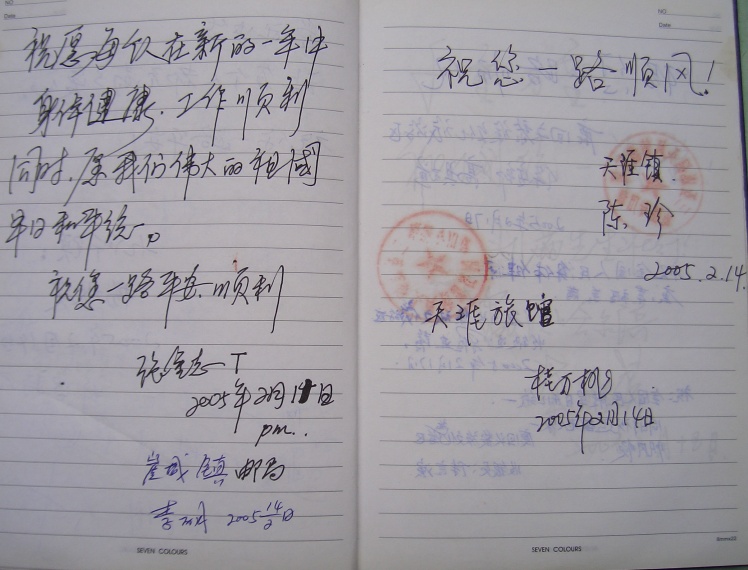 祝愿每位在新的一年中
身体健康.工作顺利
同时.愿我们伟大的祖國
早日和平统一。
祝您一路平安.顺利
2005年2月15日
pm..
崖城镇邮局
2005 14/2日
SEVEN COLOURS
NO
Date
祝您一路顺风!
天涯镇
陈珍
2005.2.14.
天涯旅馆
2005年2月14日
SEVEN COLOURS